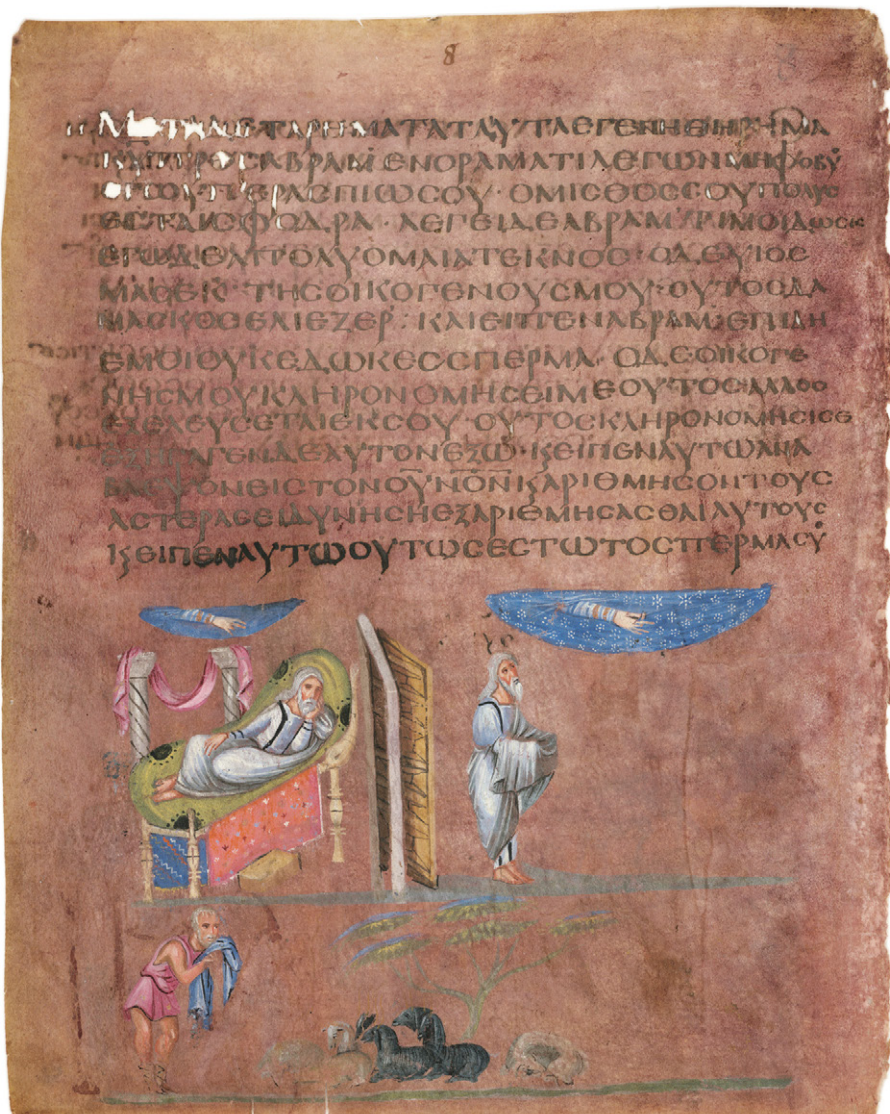 ΤΑΡΗΜΑΤΑΤΑΥΤΑΕΓΕΝΗΘΗΡΗΜΑ
ΑΒΡΑΜΕΝΟΡΑΜΑΤΙΛΕΓΩΝΜΗΦΟΒΟΥ
ΥΠΕΡΑСΠΙΩСΟΥ· ΟΜΙСΘΟССΟΥΠΟΛΥС
ΕСΤΑΙСΦΟΔΡΑ· ΛΕΓΕΙΔΕΑΒΡΑΜ ΤΙΜΟΙΔΩСΕΙС
ΕΓΩΔΕΑΠΟΛΥΟΜΑΙΑΤΕΚΝΟС· ΟΔΕΥΙΟС
ΜΑСΕΚ· ΤΗСΟΙΚΟΓΕΝΟΥСΜΟΥ· ΟΥΤΟСΔΑ
ΜΑСΚΟСΕΛΙΕΖΕΡ· ΚΑΙΕΙΠΕΝΑΒΡΑΜ· ΕΠΙΔΗ
ΕΜΟΙΟΥΚΕΔΩΚΕССΠΕΡΜΑ· ΟΔΕΟΙΚΟΓΕ
ΝΗСΜΟΥΚΛΗΡΟΝΟΜΗСΕΙΜΕΟΥΤΟС· ΑΛΛΟС
ΕΞΕΛΕΥСΕΤΑΙΕΚСΟΥ· ΟΥΤΟСΚΛΗΡΟΝΟΜΗСΙСΕ
ΕΞΗΓΑΓΕΝΔΕΑΥΤΟΝΕΞΩ· ϗΕΙΠΕΝΑΥΤΩΑΝΑ
ΒΛΕΨΟΝΕΙСΤΟΝΟΥΝΟΝϗΑΡΙΘΜΗСΟΝΤΟΥС
ΑСΤΕΡΑСΕΙΔΥΝΗСΗΕΞΑΡΙΘΜΗСΑСΘΑΙΑΥΤΟΥС
ϗΕΙΠΕΝΑΥΤΩΟΥΤΩСΕСΤΩΤΟСΠΕΡΜΑСΟΥ